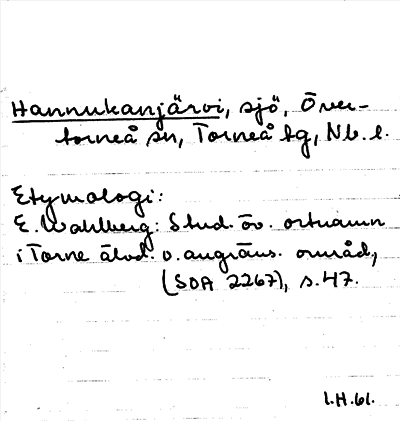 Hannukanjärvi, sjö, Över-
torneå sn, Torneå tg, Nb. l.
Etymologi:
E. Wahlberg: Stud. öv. ortnamn
i Torne älvd. o. angräns. områd,
(SOA 2267), s. 47.
l.H.61.